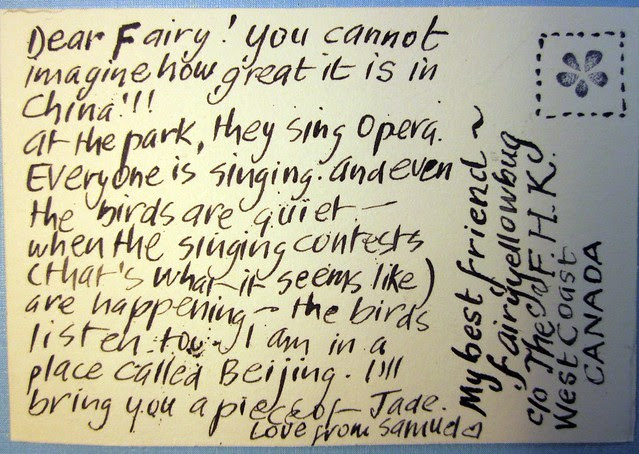 Dear Fairy! you cannot
imagine how great it is in
China!!!
at the park, they sing Opera.
Everyone is singing. and even
the birds are quiet —
when the singing contests
(that's what it seems like)
are happening — the birds
listen too. I am in a
place called Beijing. I'll
bring you a piece of Jade.
Love from Samuel
My best friend ~
fairyyellowbug
c/o The J.F.H.K.
West Coast
CANADA